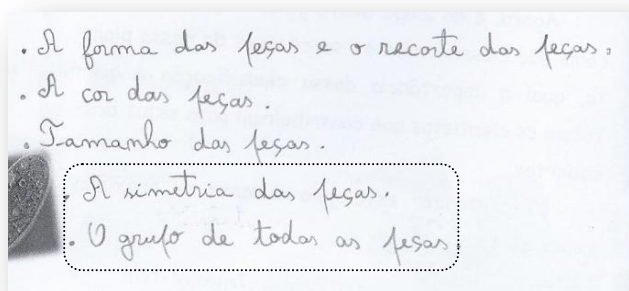 . A forma das peças e o recorte das peças.
. A cor das peças.
. Tamanho das peças.
. A simetria das peças.
. O grupo de todas as peças